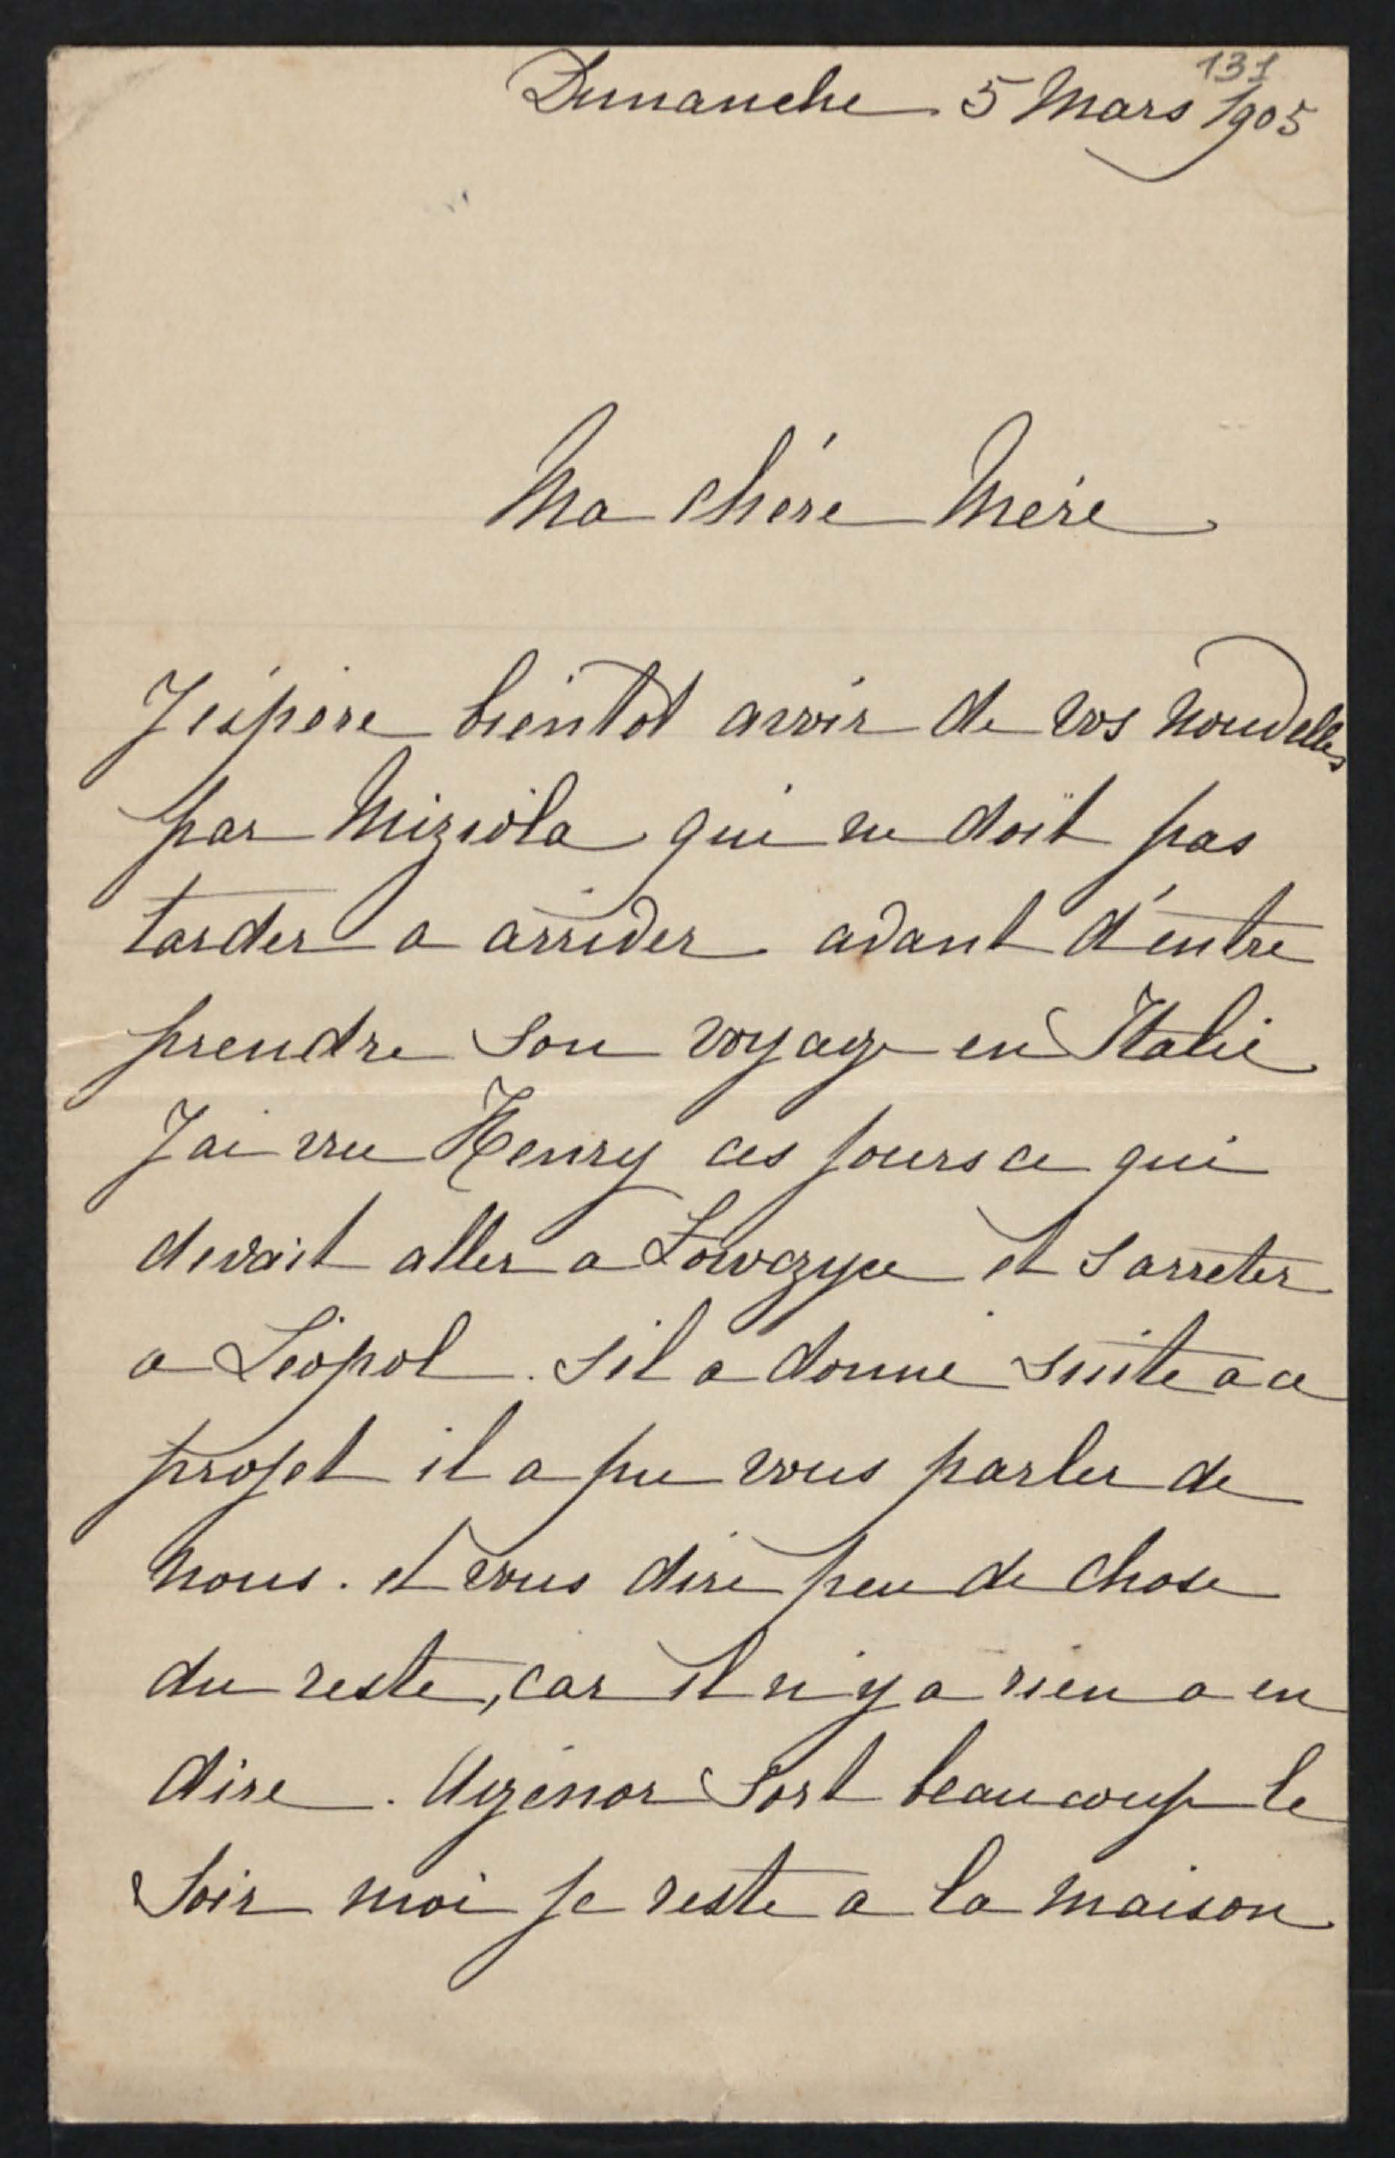 131
Dimanche 5 Mars 1905
Ma chére Mére
J'espére bientot avoir de vos nouvelles
par Miziola qui ne doit pas
tarder a arriver avant d'entre
prendre son voyage en Italie
J'ai vu Henry ces jours ce qui
devait aller a Łowczyce et s'arreter
a Léopol. s'il a donné suite a ce
projet il a pu vous parler de
nous. et vous dire peu de chose
du reste, car il n'y a rien a en
dire. Agénor sort beaucoup le
soir moi je reste a la maison